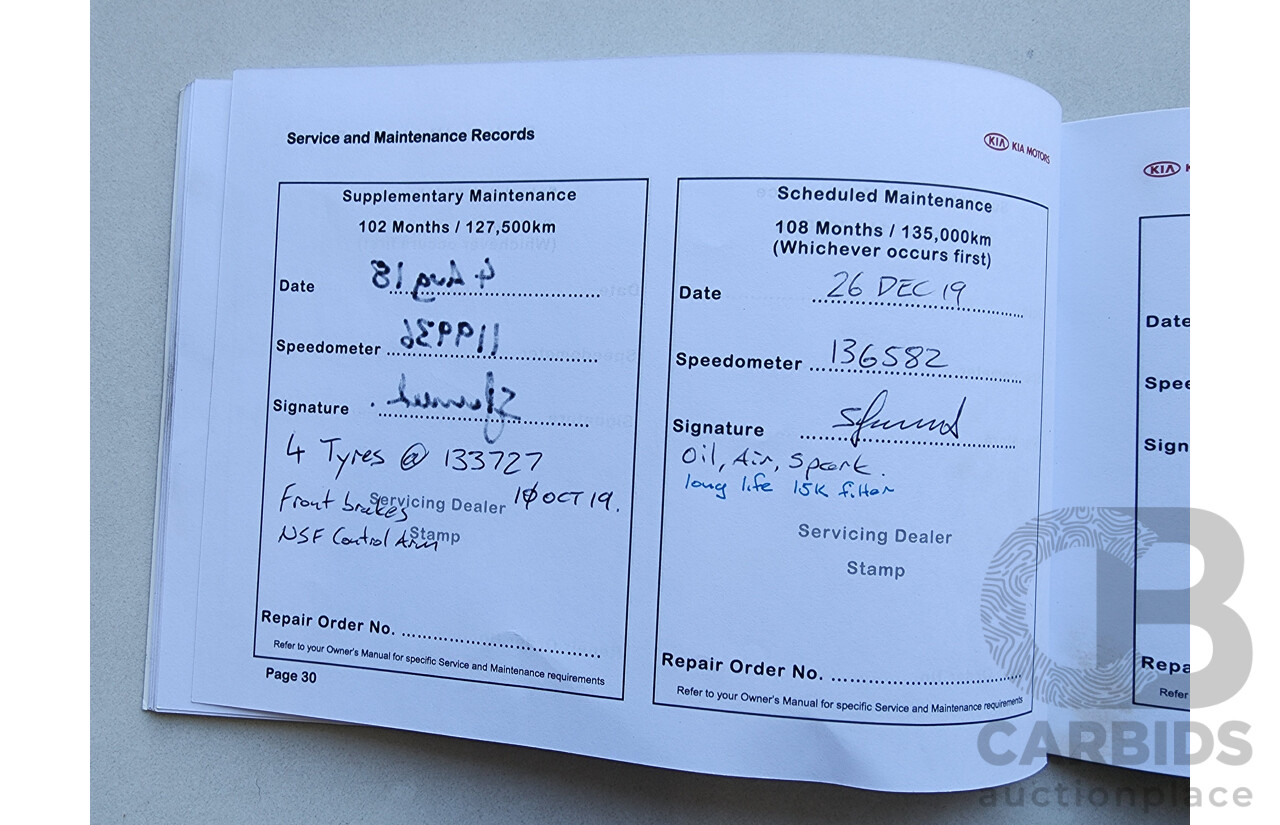 Service and Maintenance Records
KIA KIA MOTORS
Supplementary Maintenance
102 Months / 127,500km
Date 4 Aug 18
Speedometer 119936
Signature
4 Tyres @ 133727
Front brakes 10 OCT 19.
Servicing Dealer
NSF Control Arm
Stamp
Repair Order No.
Refer to your Owner's Manual for specific Service and Maintenance requirements
Page 30
Scheduled Maintenance
108 Months / 135,000km
(Whichever occurs first)
Date 26 DEC 19
Speedometer 136582
Signature
Oil, Air, Spark.
long life 15K filter
Servicing Dealer
Stamp
Repair Order No.
Refer to your Owner's Manual for specific Service and Maintenance requirements
KIA
Date
Spee
Sign
Repa
Refer
CARBIDS
auctionplace